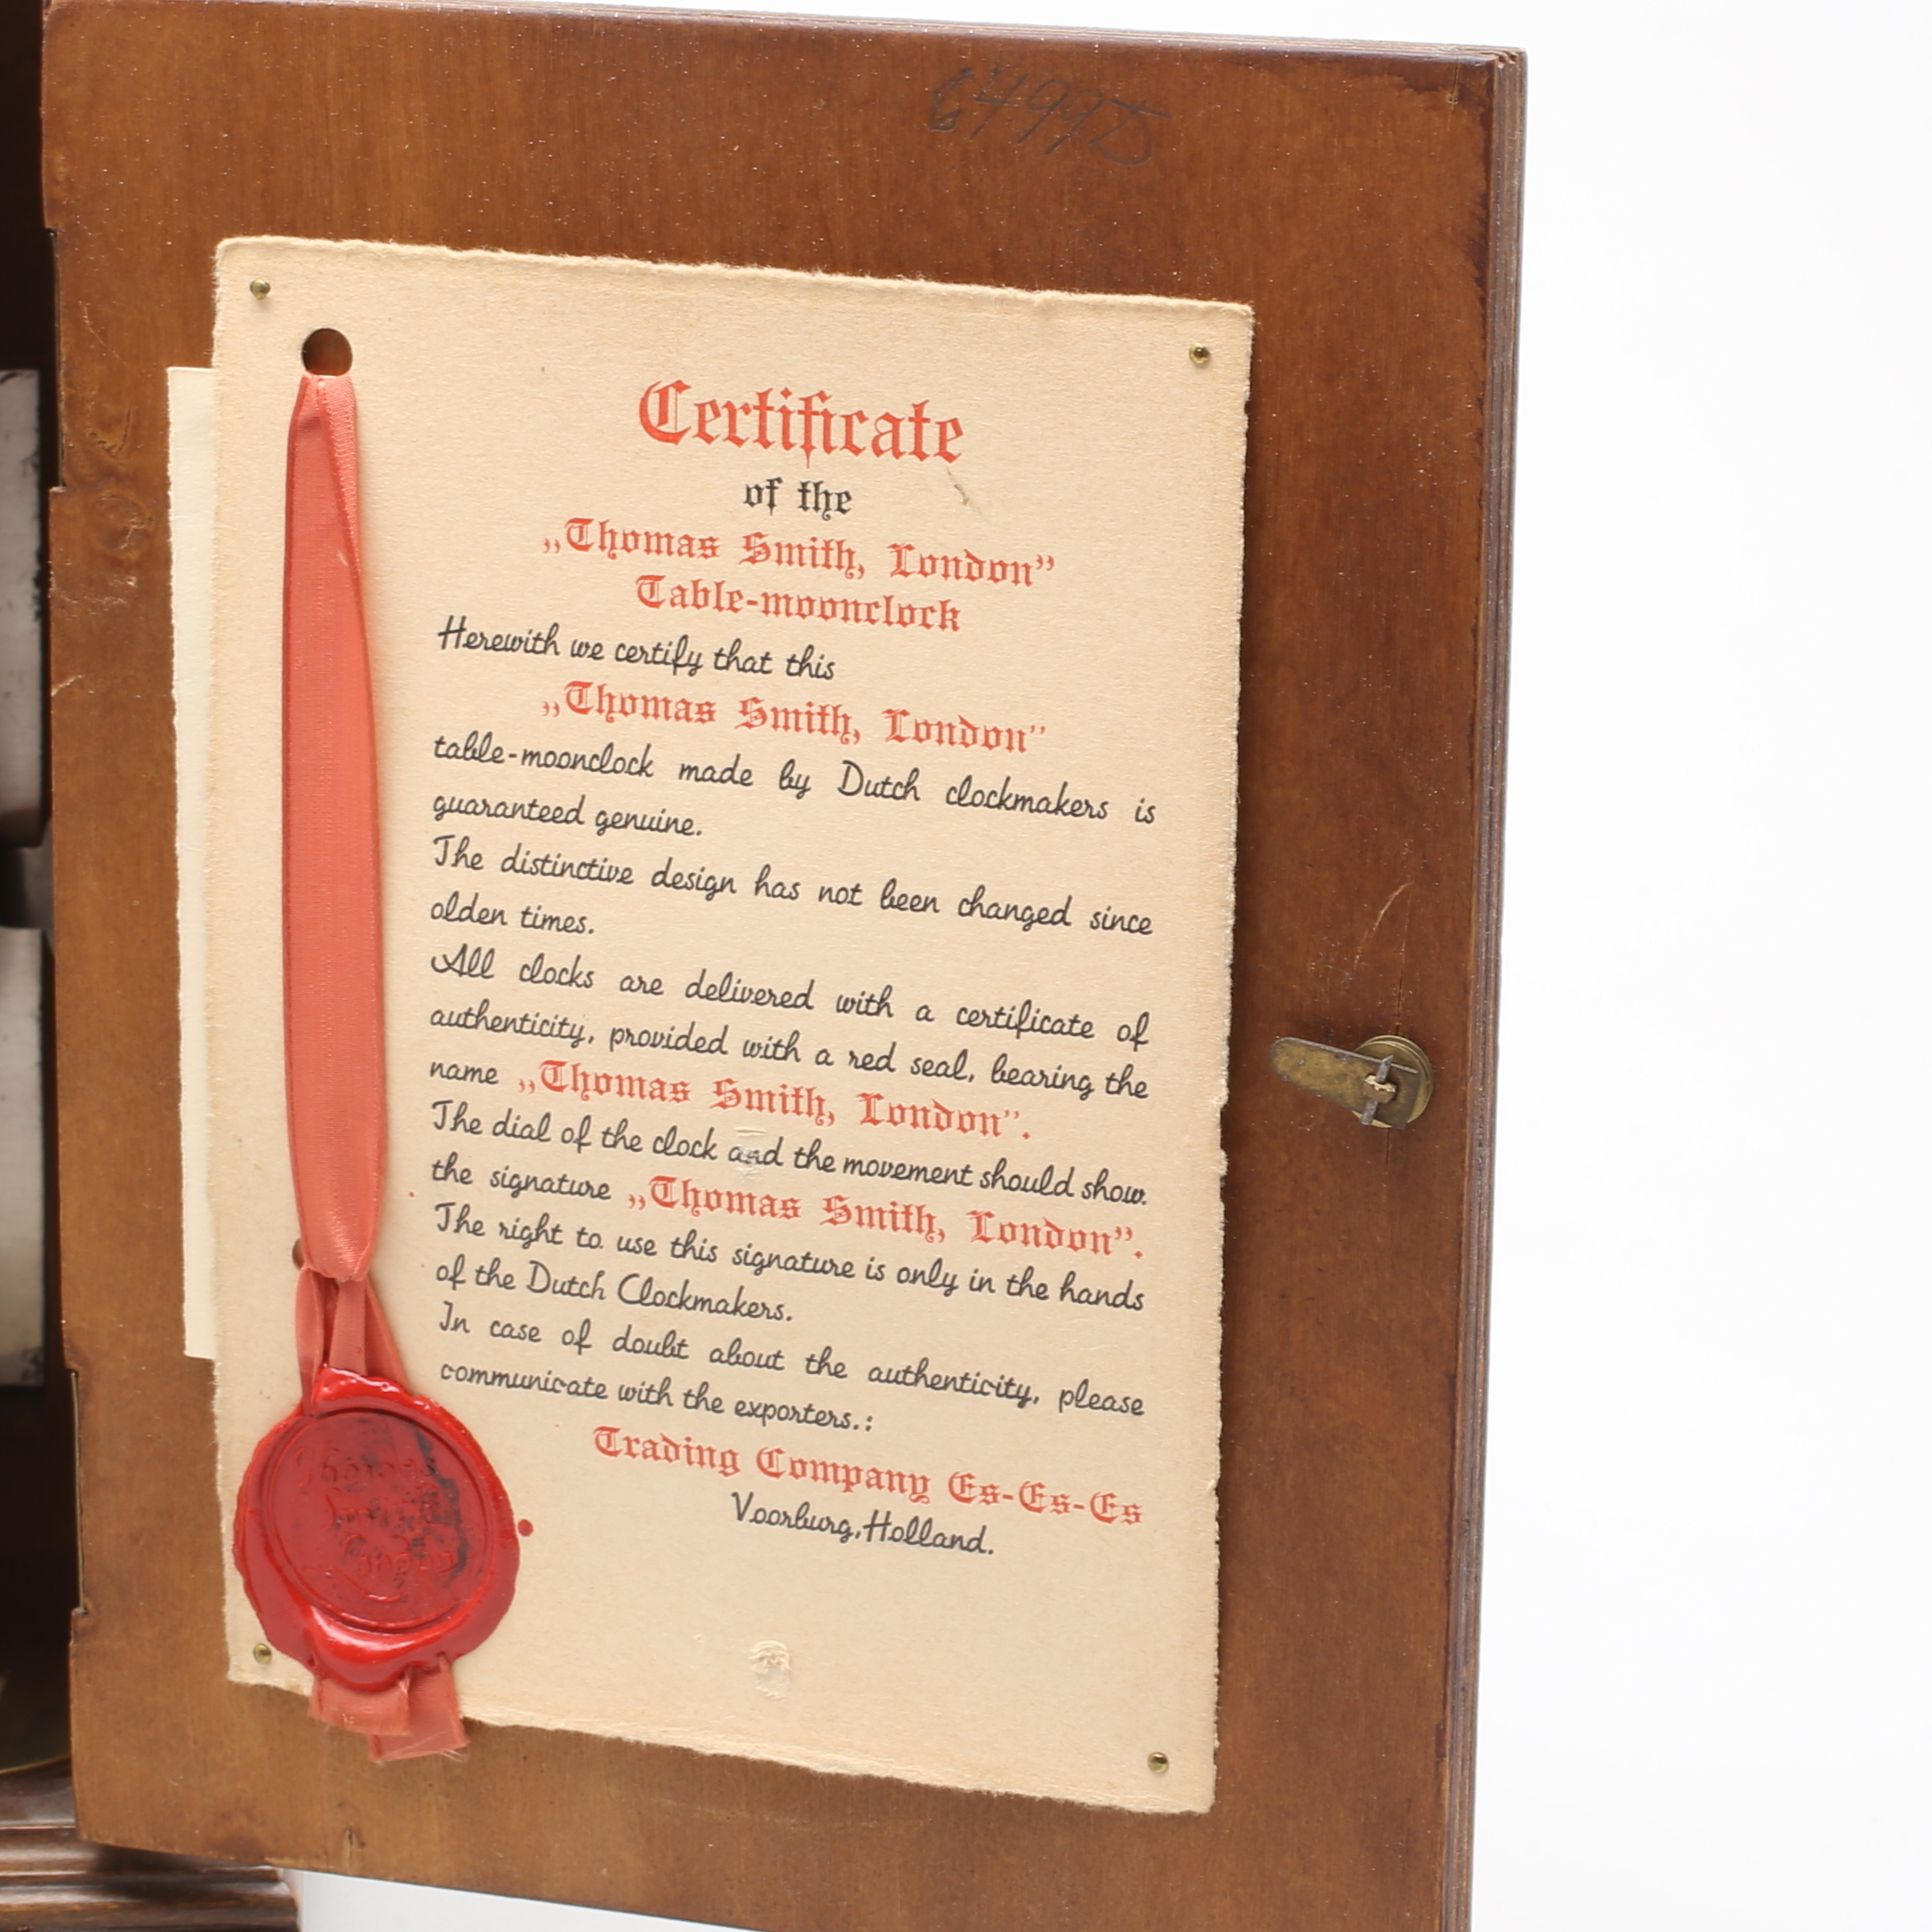 Certificate
of the
„Thomas Smith, London”
Table-moonclock
Herewith we certify that this
„Thomas Smith, London”
table-moonclock made by Dutch clockmakers is
guaranteed genuine.
The distinctive design has not been changed since
olden times.
All clocks are delivered with a certificate of
authenticity, provided with a red seal, bearing the
name „Thomas Smith, London”.
The dial of the clock and the movement should show.
the signature „Thomas Smith, London”.
The right to use this signature is only in the hands
of the Dutch Clockmakers.
In case of doubt about the authenticity, please
communicate with the exporters.:
Trading Company Es-Es-Es
Voorburg, Holland.
Thomas
Smith
London